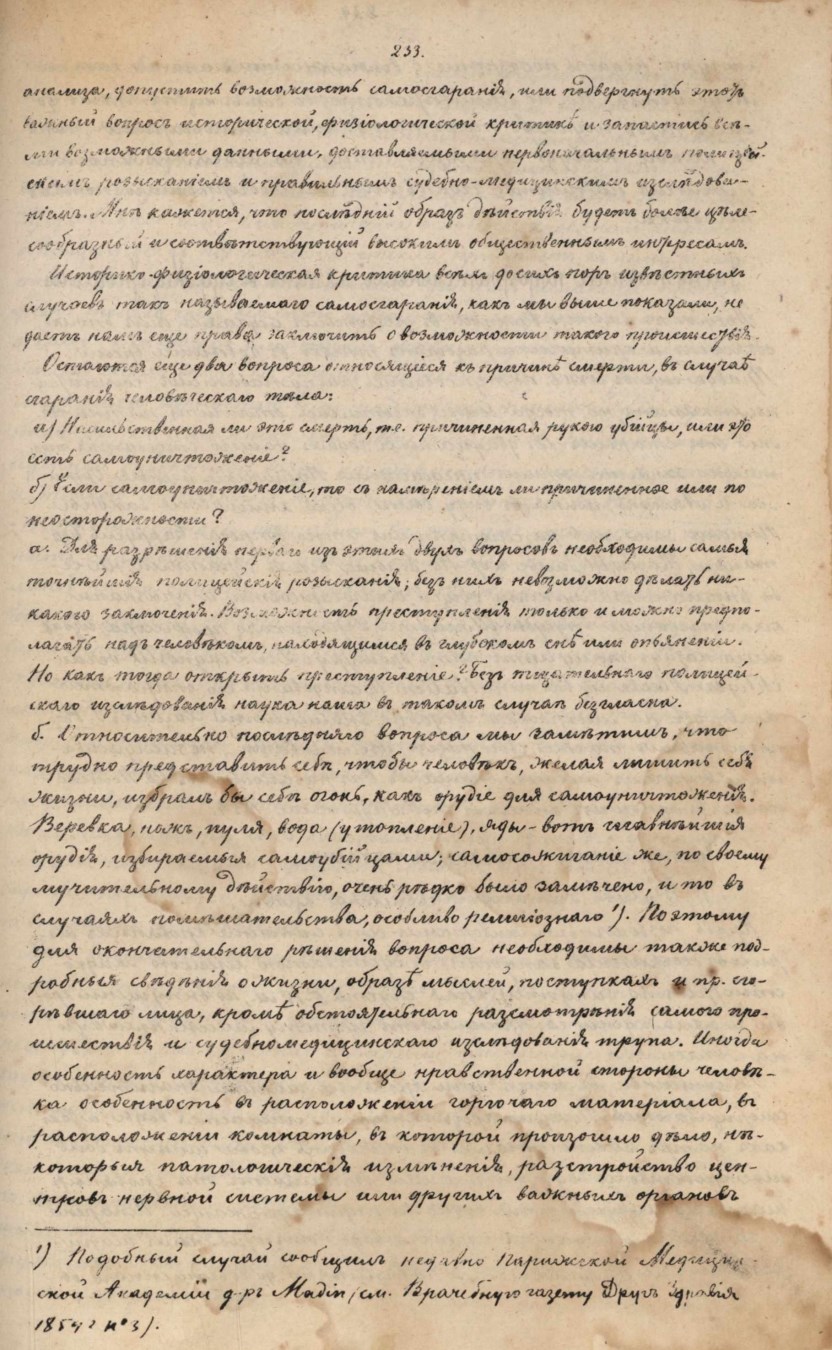 233.
анализа, допустить возможность самосгаранія, или подвергнуть этотъ
важный вопросъ исторической, физіологической критикѣ и запастись всѣ-
ми возможными данными, доставляемыми первоначальнымъ полицей-
скимъ розысканіемъ и правильнымъ судебно-медицинскимъ изслѣдова-
ніемъ. Мнѣ кажется, что послѣдній образъ дѣйствій будетъ болѣе цѣле-
сообразный и соотвѣтствующій высокимъ общественнымъ интересамъ.
Историко-физіологическая критика всѣхъ досихъ поръ извѣстныхъ
случаевъ такъ называемаго самосгаранія, какъ мы выше показали, не
даетъ намъ еще права заключить о возможности такого происшествія.
Остаются еще два вопроса относящіеся къ причинѣ смерти, въ случаѣ
сгаранія человѣческаго тѣла:
а) Насильственная ли это смерть, т.е. причиненная рукою убійцы, или это
есть самоуничтоженіе?
б) Если самоуничтоженіе, то съ намѣреніемъ ли причиненное или по
неосторожности?
а. Для разрѣшенія перваго изъ этихъ двухъ вопросовъ необходимы самыя
точнѣйшія полицейскія розысканія; безъ нихъ невозможно дѣлать ни-
какого заключенія. Возможность преступленія только и можно предпо-
лагать надъ человѣкомъ, находящимся въ глубокомъ снѣ или опьяненіи.
Но какъ тогда открыть преступленіе? Безъ тщательнаго полицей-
скаго изслѣдованія наука наша въ такомъ случаѣ безгласна.
б. Относительно послѣдняго вопроса мы замѣтимъ, что
трудно представить себѣ, чтобы человѣкъ, желая лишить себя
жизни, избралъ бы себѣ огонь, какъ орудіе для самоуничтоженія.
Веревка, ножъ, пуля, вода (утопленіе), яды - вотъ главнѣйшія
орудія, избираемыя самоубійцами; самосожиганіе же, по своему
мучительному дѣйствію, очень рѣдко было замѣчено, и то въ
случаяхъ помѣшательства, особливо религіознаго ¹). Поэтому
для окончательнаго рѣшенія вопроса необходимы также под-
робныя свѣдѣнія о жизни, образѣ мыслей, поступкахъ и пр. сго-
рѣвшаго лица, кромѣ обстоятельнаго разсмотрѣнія самого про-
исшествія и судебномедицинскаго изслѣдованія трупа. Иногда
особенность характера и вообще нравственной стороны человѣ-
ка особенность въ расположеніи горючаго матеріала, въ
расположеніи комнаты, въ которой произошло дѣло, нѣ-
которыя патологическія измѣненія, разстройство цен-
тровъ нервной системы или другихъ важныхъ органовъ
¹) Подобный случай сообщилъ недавно Парижской Медицин-
ской Академіи д-ръ Madin (см. Врачебную газету Другъ Здравія
1854 г № 3).